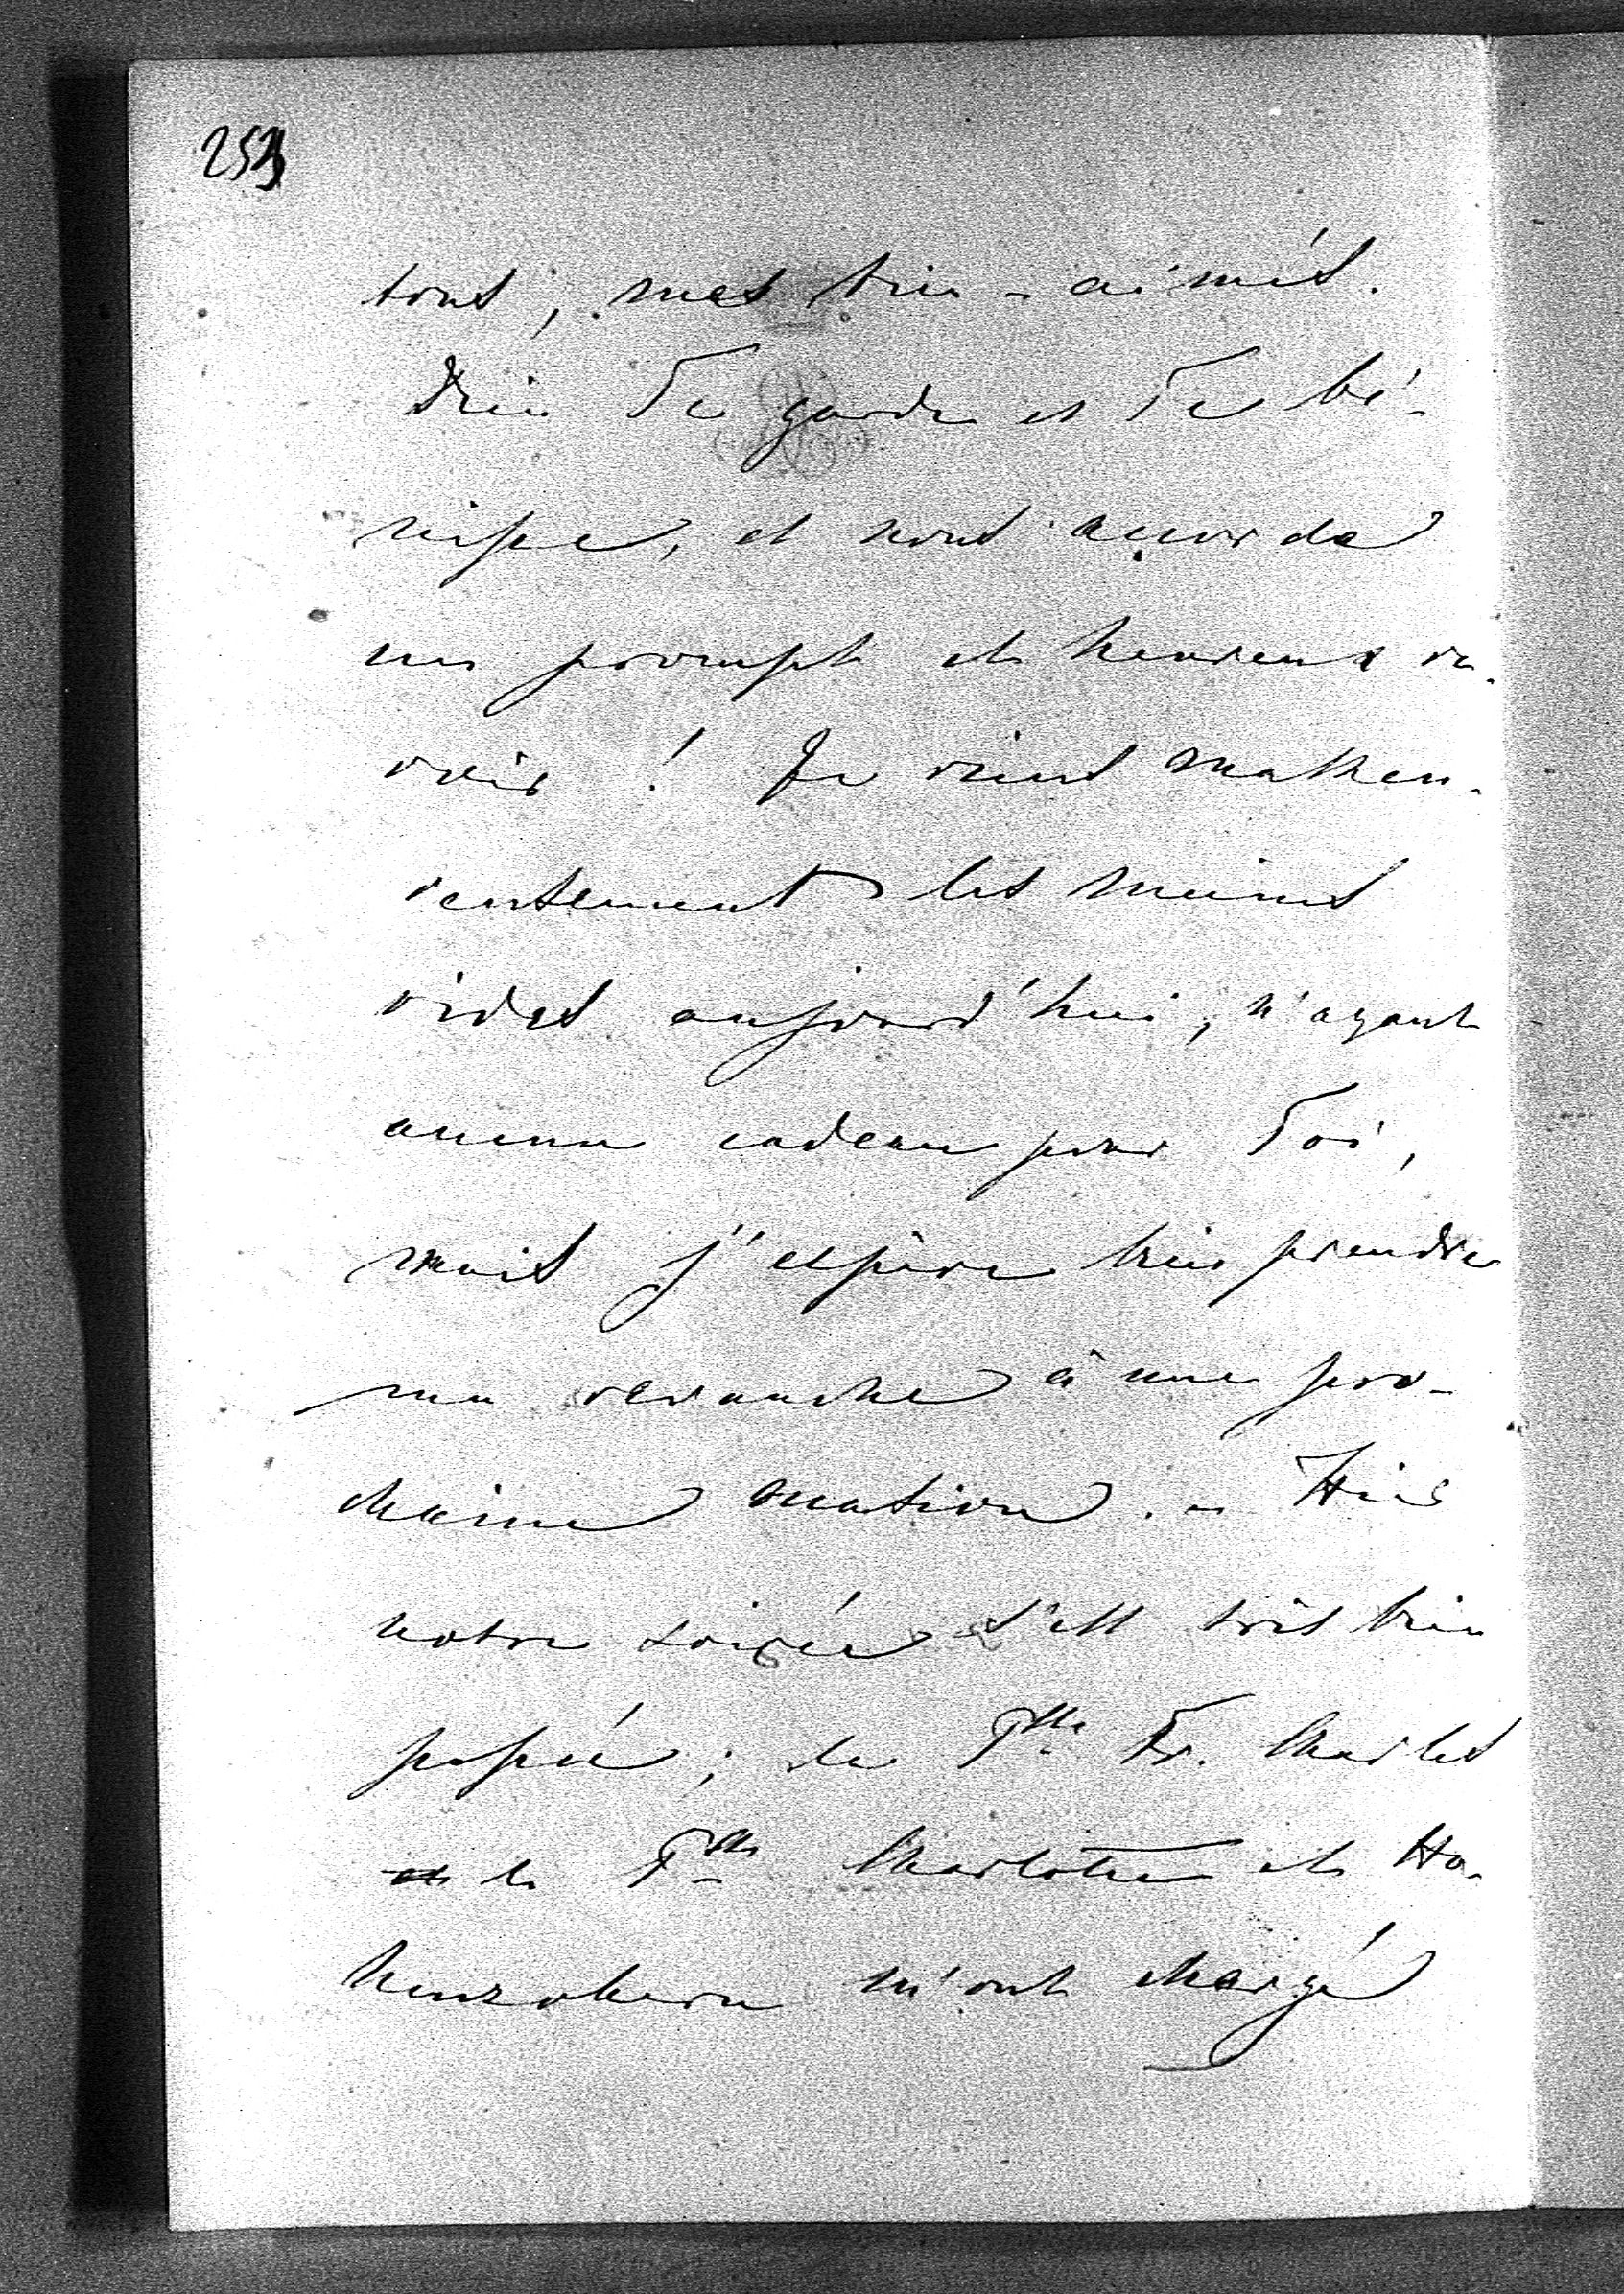 tous, mes bien-aimés.
Dieu Te garde et Te bé-
nisse, et nous accorde
un prompt et heureux re-
voir ! Je viens malheu-
reusement les mains
vides aujourd'hui, n'ayant
aucun cadeau pour Toi,
mais j'espère bien prendre
ma revanche à une pro-
chaine . - Hier
notre soirée s'est très bien
passée; le Fr. Charles
et la Charlotte et Ho-
henzollern m'ont chargé